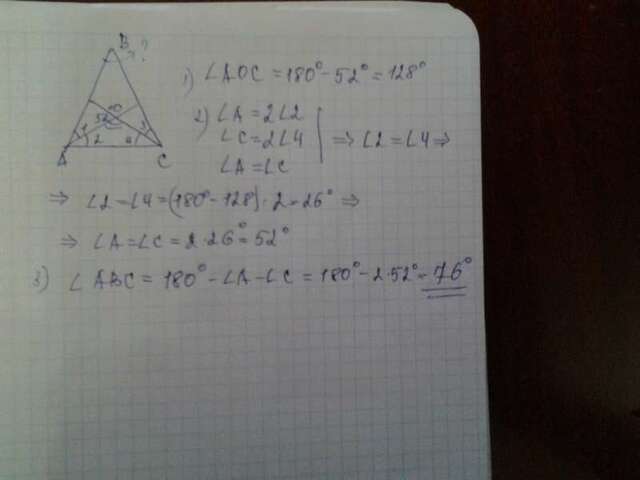 B ?
52° O
1 2 4 3
A C
1) ∠AOC = 180° - 52° = 128°
2) ∠A = 2∠2
∠C = 2∠4 | ⇒ ∠2 = ∠4 ⇒
∠A = ∠C
⇒ ∠2 = ∠4 = (180° - 128) : 2 = 26° ⇒
⇒ ∠A = ∠C = 2·26° = 52°
3) ∠ABC = 180° - ∠A - ∠C = 180° - 2·52° = 76°